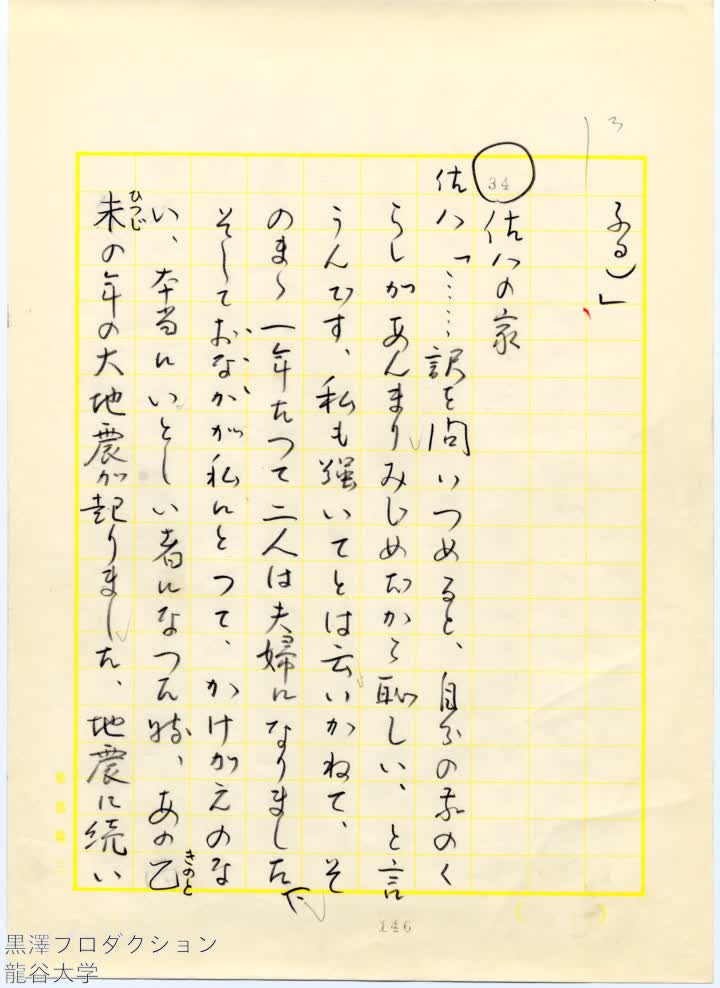 13
ふる)」
34
佐八の家
佐八「……訳を問いつめると、自分の家のく
らしがあんまりみじめだから恥しい、と言
うんです、私も強いてとは云いかねて、そ
のまゝ一年たつて二人は夫婦になりました
そしておなかが私にとつて、かけがえのな
い、本当にいとしい者になつた時、あの乙
きのと
未の年の大地震が起りました、地震に続い
ひつじ
146
黒澤プロダクション
龍谷大学